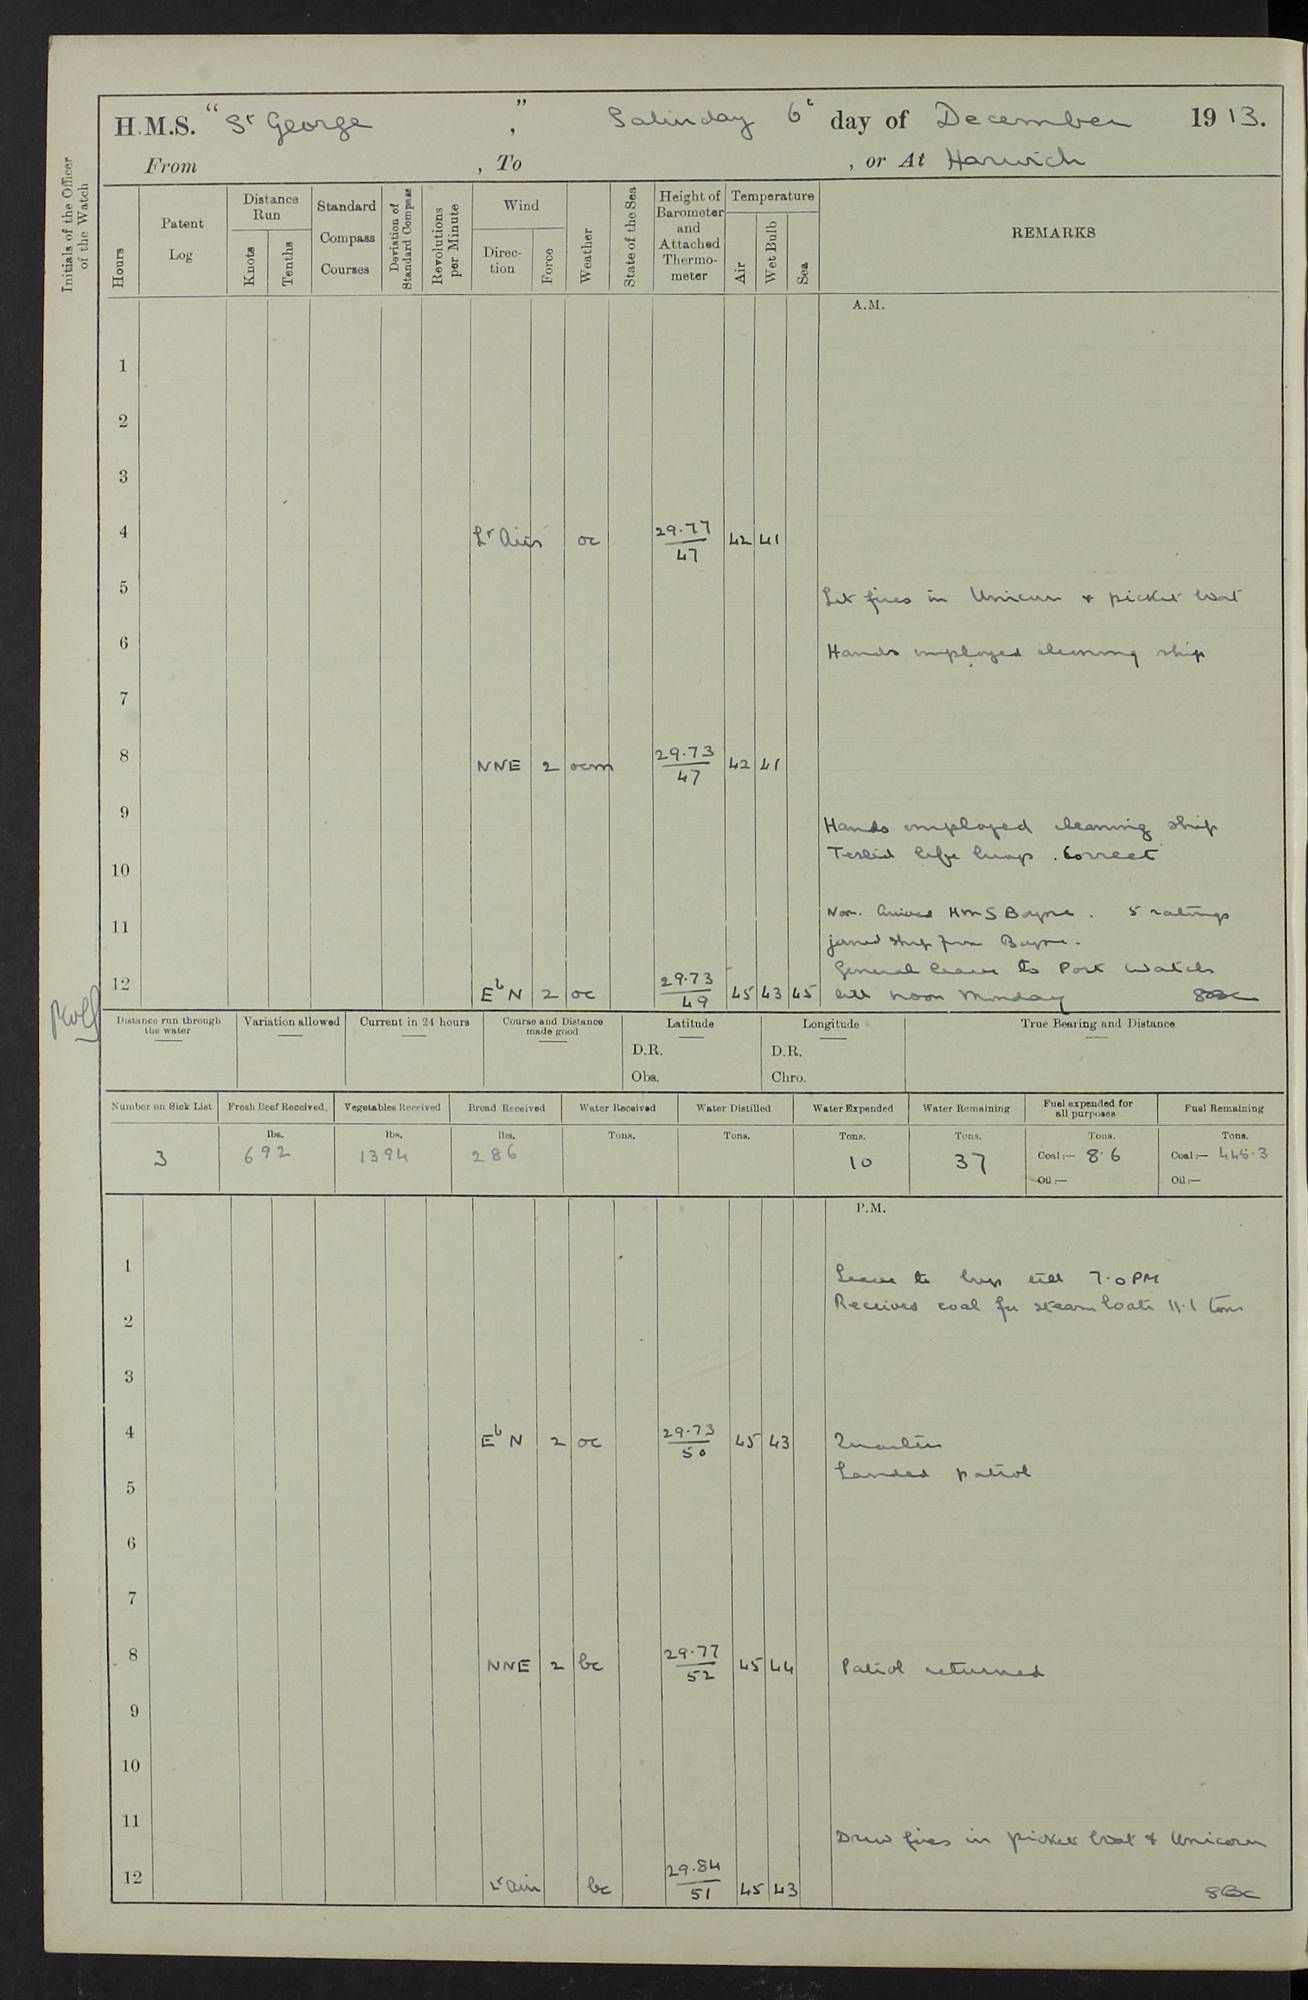 H.M.S. "St George", Saturday 6t day of December 1913.
From , To , or At Harwich
Initials of the Officer of the Watch
Hours
Patent Log
Distance Run
Knots
Tenths
Standard Compass Courses
Deviation of Standard Compass
Revolutions per Minute
Wind
Direction
Force
Weather
State of the Sea
Height of Barometer and Attached Thermometer
Temperature
Air
Wet Bulb
Sea
REMARKS
A.M.
1
2
3
4 Lt Airs oc 29.77/47 42 41
5 Lit fires in Unicorn & picket boat
6 Hands employed cleaning ship
7
8 NNE 2 ocm 29.73/47 42 41
9 Hands employed cleaning ship
Tested life buoys. Correct
10
Arrived HMS Boyne. 5 ratings
11 joined ship from Boyne.
General leave to Port Watch
12 EbN 2 oc 29.73/49 45 43 45 till noon Monday
Distance run through the water
Variation allowed
Current in 24 hours
Course and Distance made good
Latitude
D.R.
Obs.
Longitude
D.R.
Chro.
True Bearing and Distance
Number on Sick List Fresh Beef Received. Vegetables Received Bread Received Water Received Water Distilled Water Expended Water Remaining Fuel expended for all purposes Fuel Remaining
lbs. lbs. lbs. Tons. Tons. Tons. Tons. Tons. Tons.
3 692 1394 286 10 37 Coal:— 8.6 Coal:— 445.3
Oil:— Oil:—
P.M.
1 Leave to boys till 7.0 PM
2 Received coal for steam boats 11.1 tons
3
4 EbN 2 oc 29.73/50 45 43 Quarters
Landed patrol
5
6
7
8 NNE 2 bc 29.77/52 45 44 Patrol returned
9
10
11 Drew fires in picket boat & Unicorn
12 Lt airs bc 29.84/51 45 43